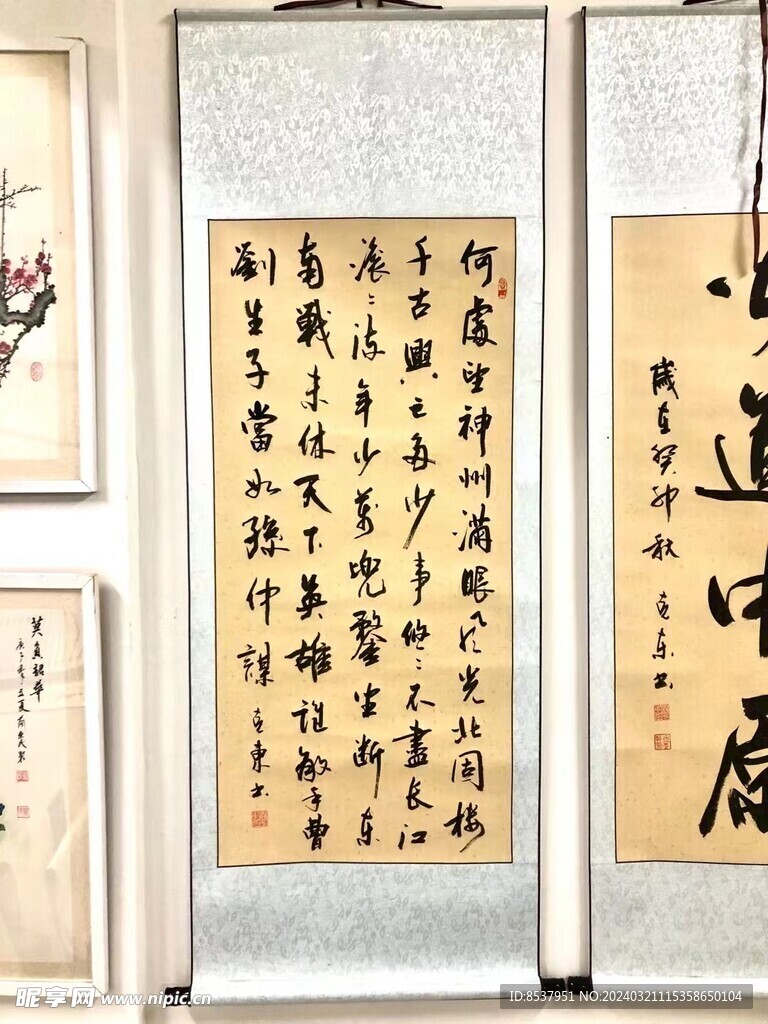 何處望神州滿眼风光北固樓
千古興亡多少事悠〻不盡長江
滚〻流年少萬兜鍪坐断东
南戰未休天下英雄誰敵手曹
劉生子當如孫仲謀
克東书
道中原
歲在癸卯秋
克东书
莫負韶華
昵享网 www.nipic.cn
ID:8537951 NO:20240321115358650104